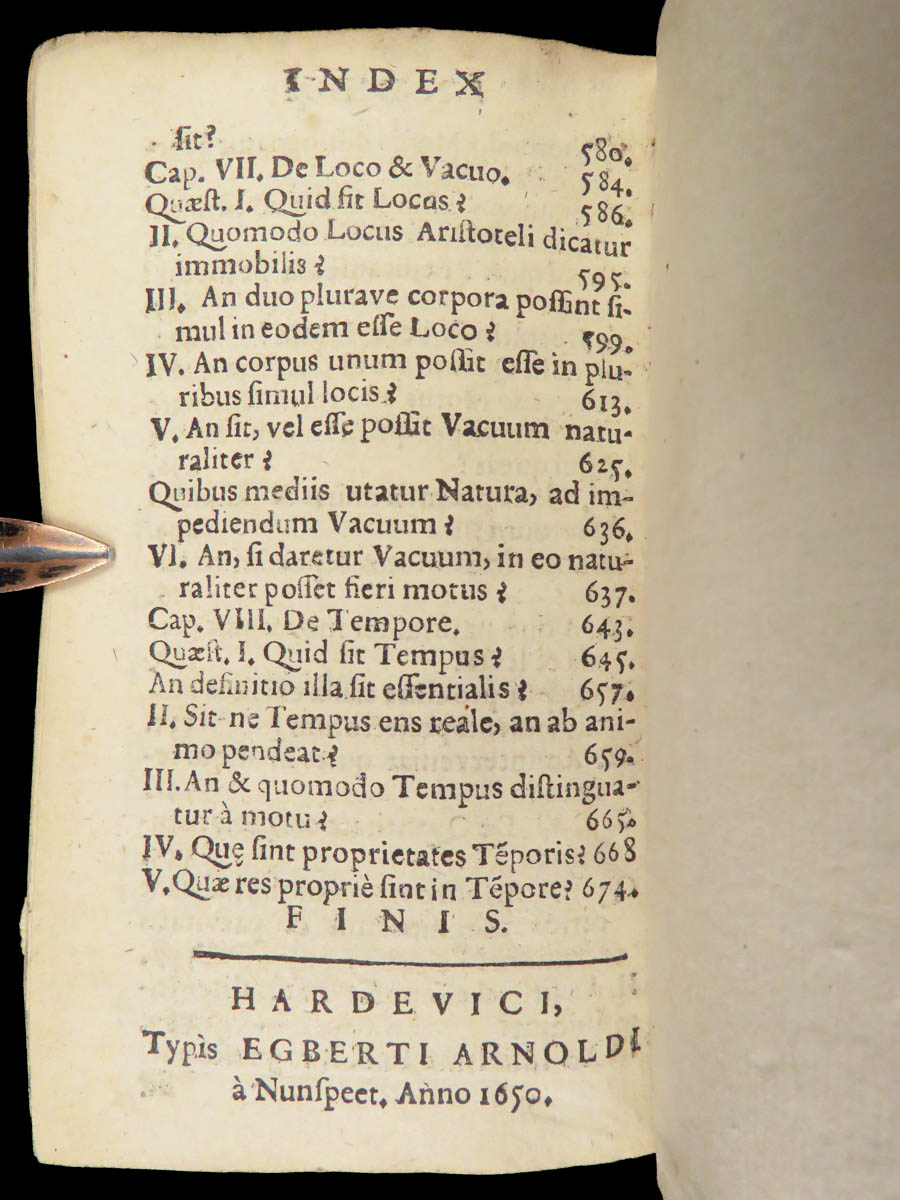 INDEX
ſit? 580.
Cap. VII. De Loco & Vacuo. 584.
Quæſt. I. Quid ſit Locus? 586.
II. Quomodo Locus Ariſtoteli dicatur
immobilis? 595.
III. An duo plurave corpora poſſint ſi-
mul in eodem eſſe Loco? 599.
IV. An corpus unum poſſit eſſe in plu-
ribus ſimul locis? 613.
V. An ſit, vel eſſe poſſit Vacuum natu-
raliter? 625.
Quibus mediis utatur Natura, ad im-
pediendum Vacuum? 636.
VI. An, ſi daretur Vacuum, in eo natu-
raliter poſſet fieri motus? 637.
Cap. VIII. De Tempore. 643.
Quæſt. I. Quid ſit Tempus? 645.
An definitio illa ſit eſſentialis? 657.
II. Sit ne Tempus ens reale, an ab ani-
mo pendeat? 659.
III. An & quomodo Tempus diſtingua-
tur à motu? 665.
IV. Quę ſint proprietates Tẽporis? 668
V. Quæ res propriè ſint in Tẽpore? 674.
FINIS.
HARDEVICI,
Typis EGBERTI ARNOLDI
à Nunſpeet. Anno 1650.